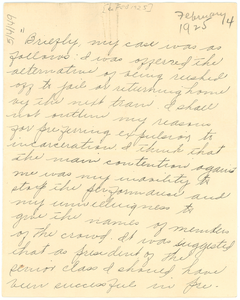 February 14
1925
"Briefly, my case was as
follows: I was offered the
alternative of being rushed
off to jail or returning home
by the next train. I shall
not outline my reasons
for preferring expulsion to
incarceration. I think that
the main contention against
me was my inability to
stop the performance and
my unwillingness to
give the names of members
of the crowd. It was suggested
that as president of the
senior class I should have
been successful in pre-